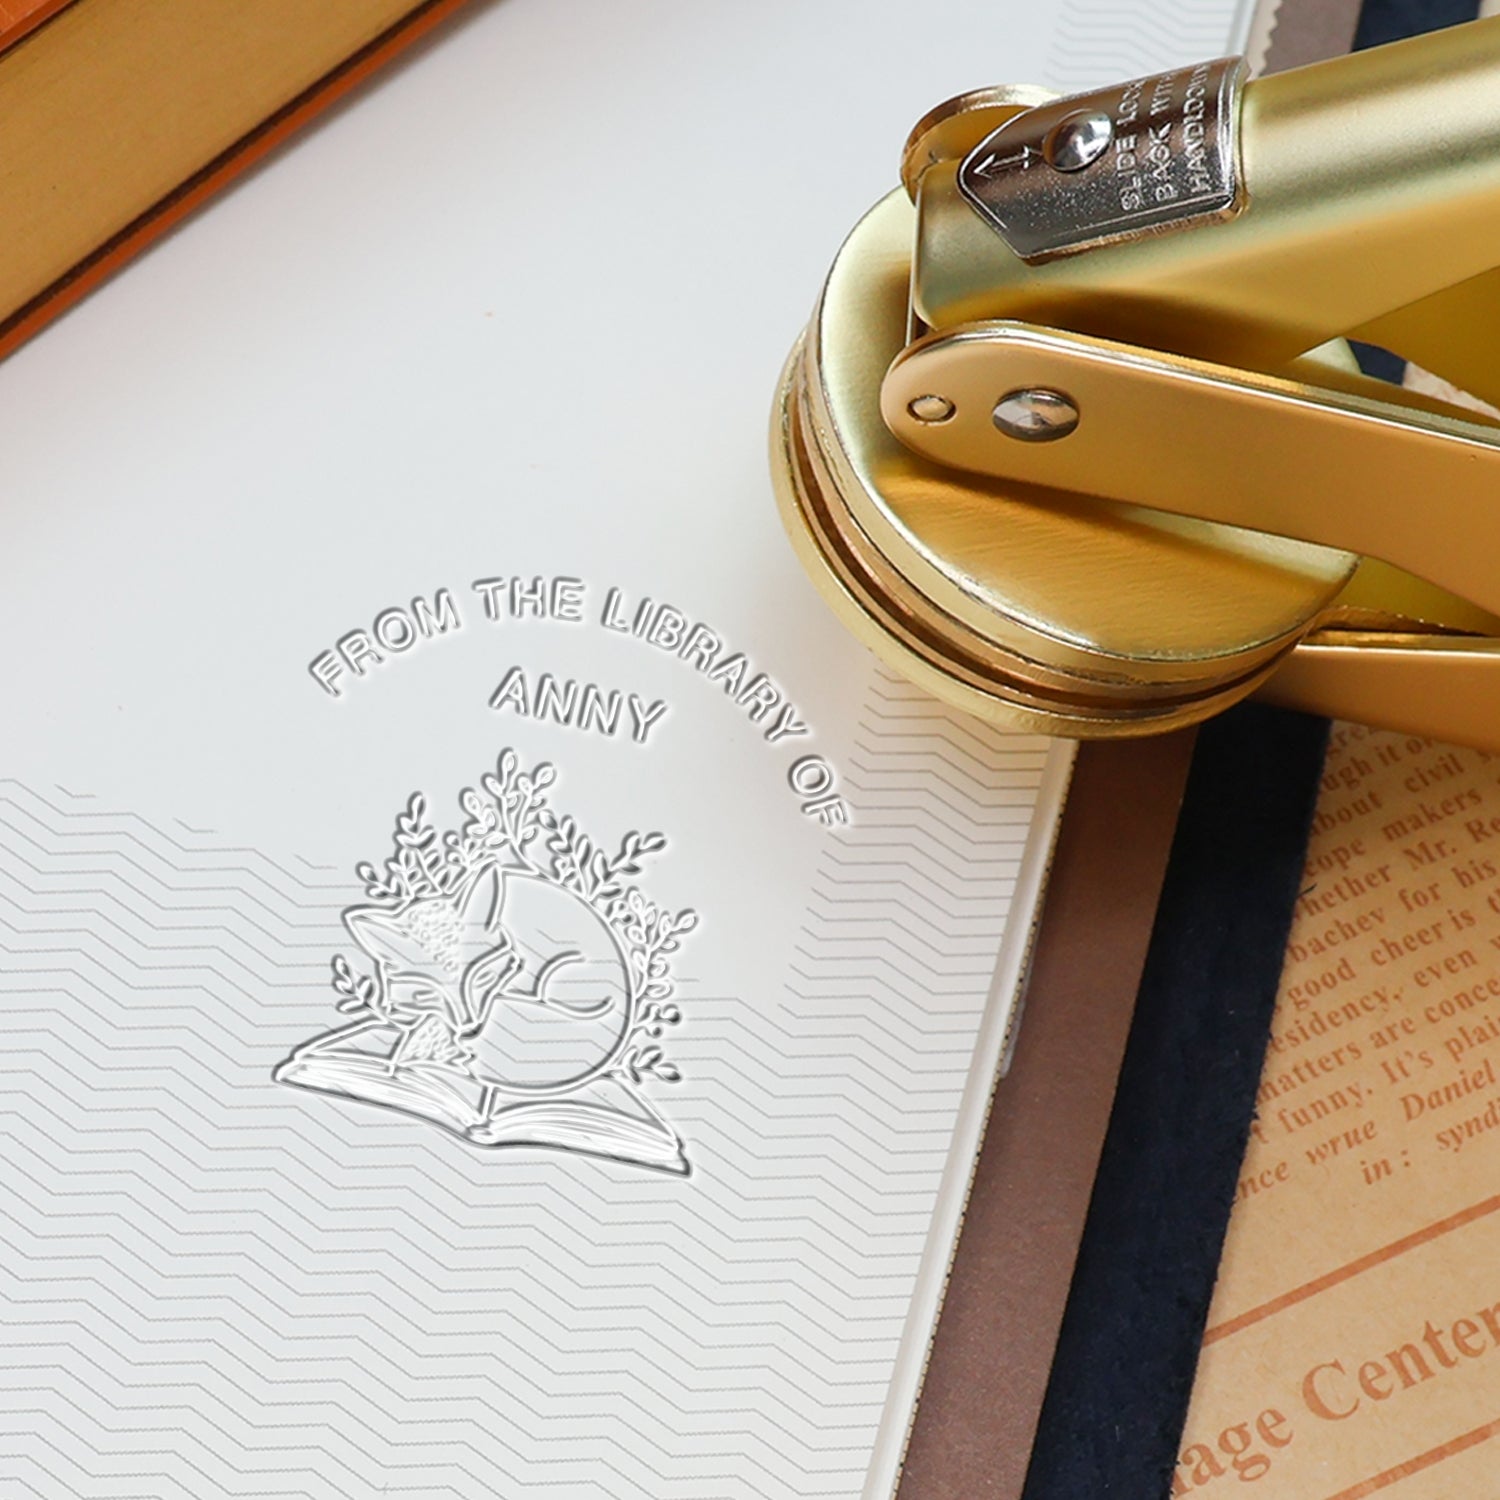 SLIDE LOCK
BACK WITH
HANDLDOWN
FROM THE LIBRARY OF
ANNY
ugh it or
about civil s
cope makers
whether Mr. Re
bachev for his
good cheer is th
esidency, even
matters are conce
t funny. It's plai
nce wrue Daniel
in: synd
age Center